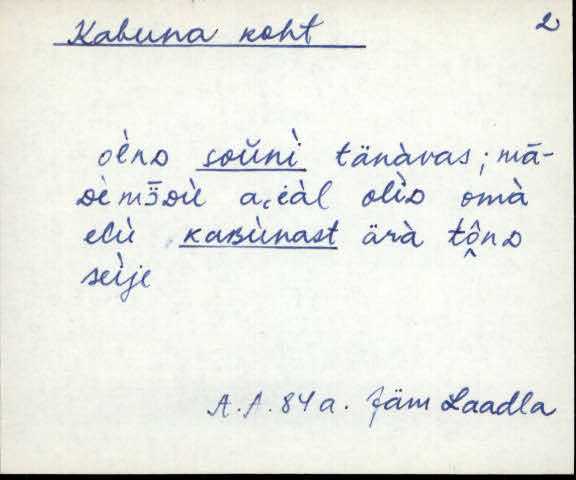 Kabuna koht
2
oènᴅ soŭnì tänàvas; mā-
ᴅè mɜ̄ᴅìl aᴄ̇èàl olìᴅ omà
elù kaʙùnast ärà tô̭nᴅ
seìje
A.A. 84 a. Jäm Laadla